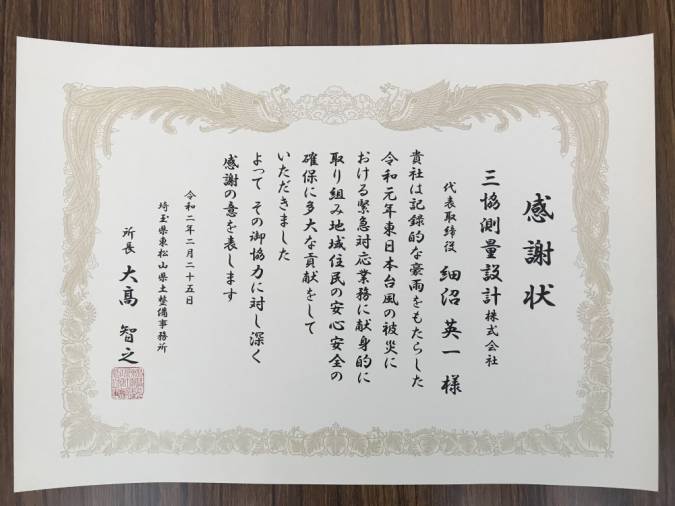 感謝状
三協測量設計株式会社
代表取締役 細沼英一様
貴社は記録的な豪雨をもたらした
令和元年東日本台風の被災に
おける緊急対応業務に献身的に
取り組み地域住民の安心安全の
確保に多大な貢献をして
いただきました
よって その御協力に対し深く
感謝の意を表します
令和二年二月二十五日
埼玉県東松山県土整備事務所
所長 大髙智之